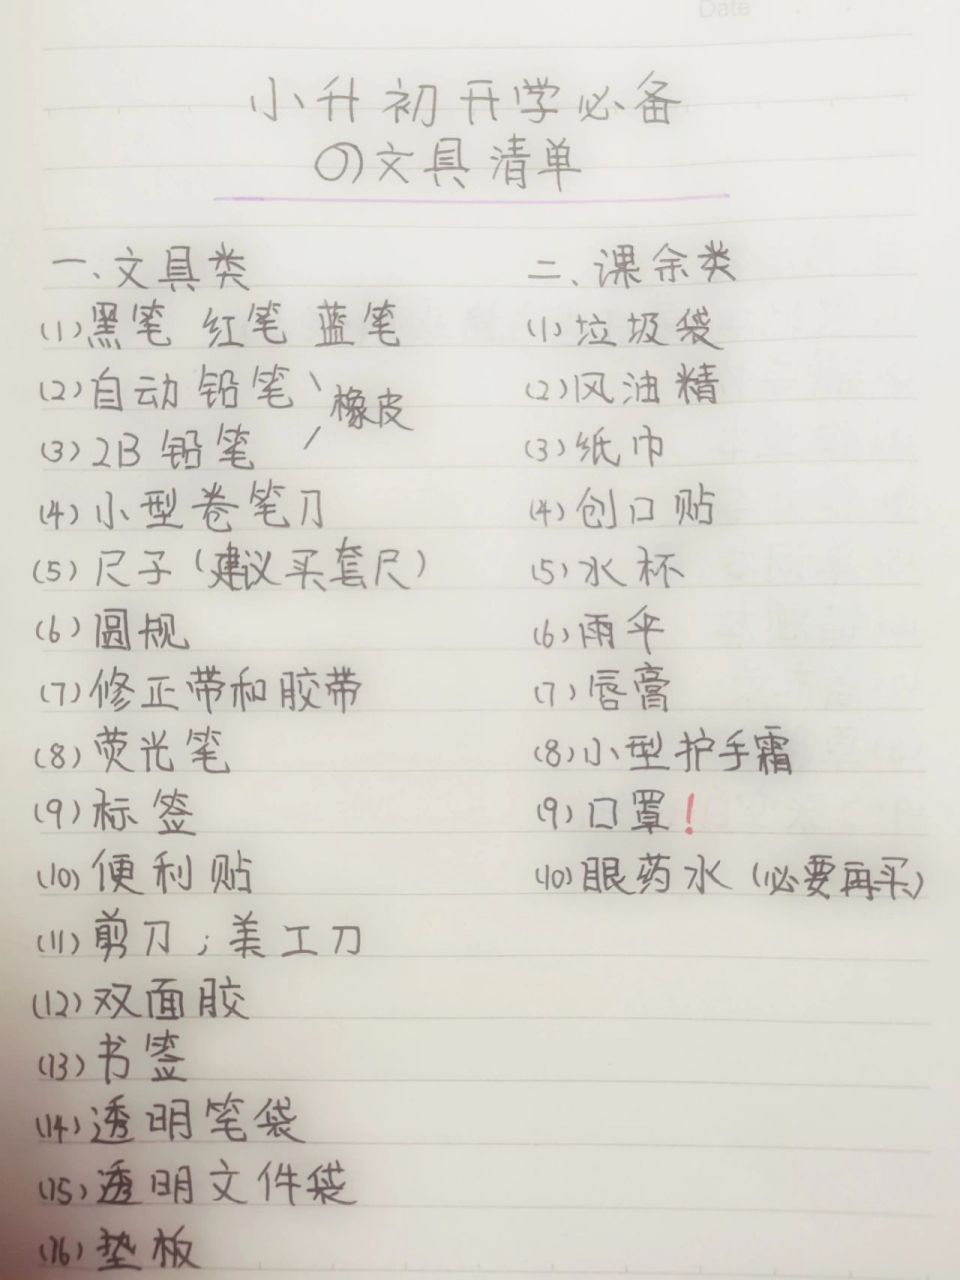 Date
小升初开学必备
の文具清单
一、文具类
(1)黑笔 红笔 蓝笔
(2)自动铅笔、橡皮
(3)2B铅笔
(4)小型卷笔刀
(5)尺子(建议买套尺)
(6)圆规
(7)修正带和胶带
(8)荧光笔
(9)标签
(10)便利贴
(11)剪刀；美工刀
(12)双面胶
(13)书签
(14)透明笔袋
(15)透明文件袋
(16)垫板
二、课余类
(1)垃圾袋
(2)风油精
(3)纸巾
(4)创口贴
(5)水杯
(6)雨伞
(7)唇膏
(8)小型护手霜
(9)口罩!
(10)眼药水(必要再买)